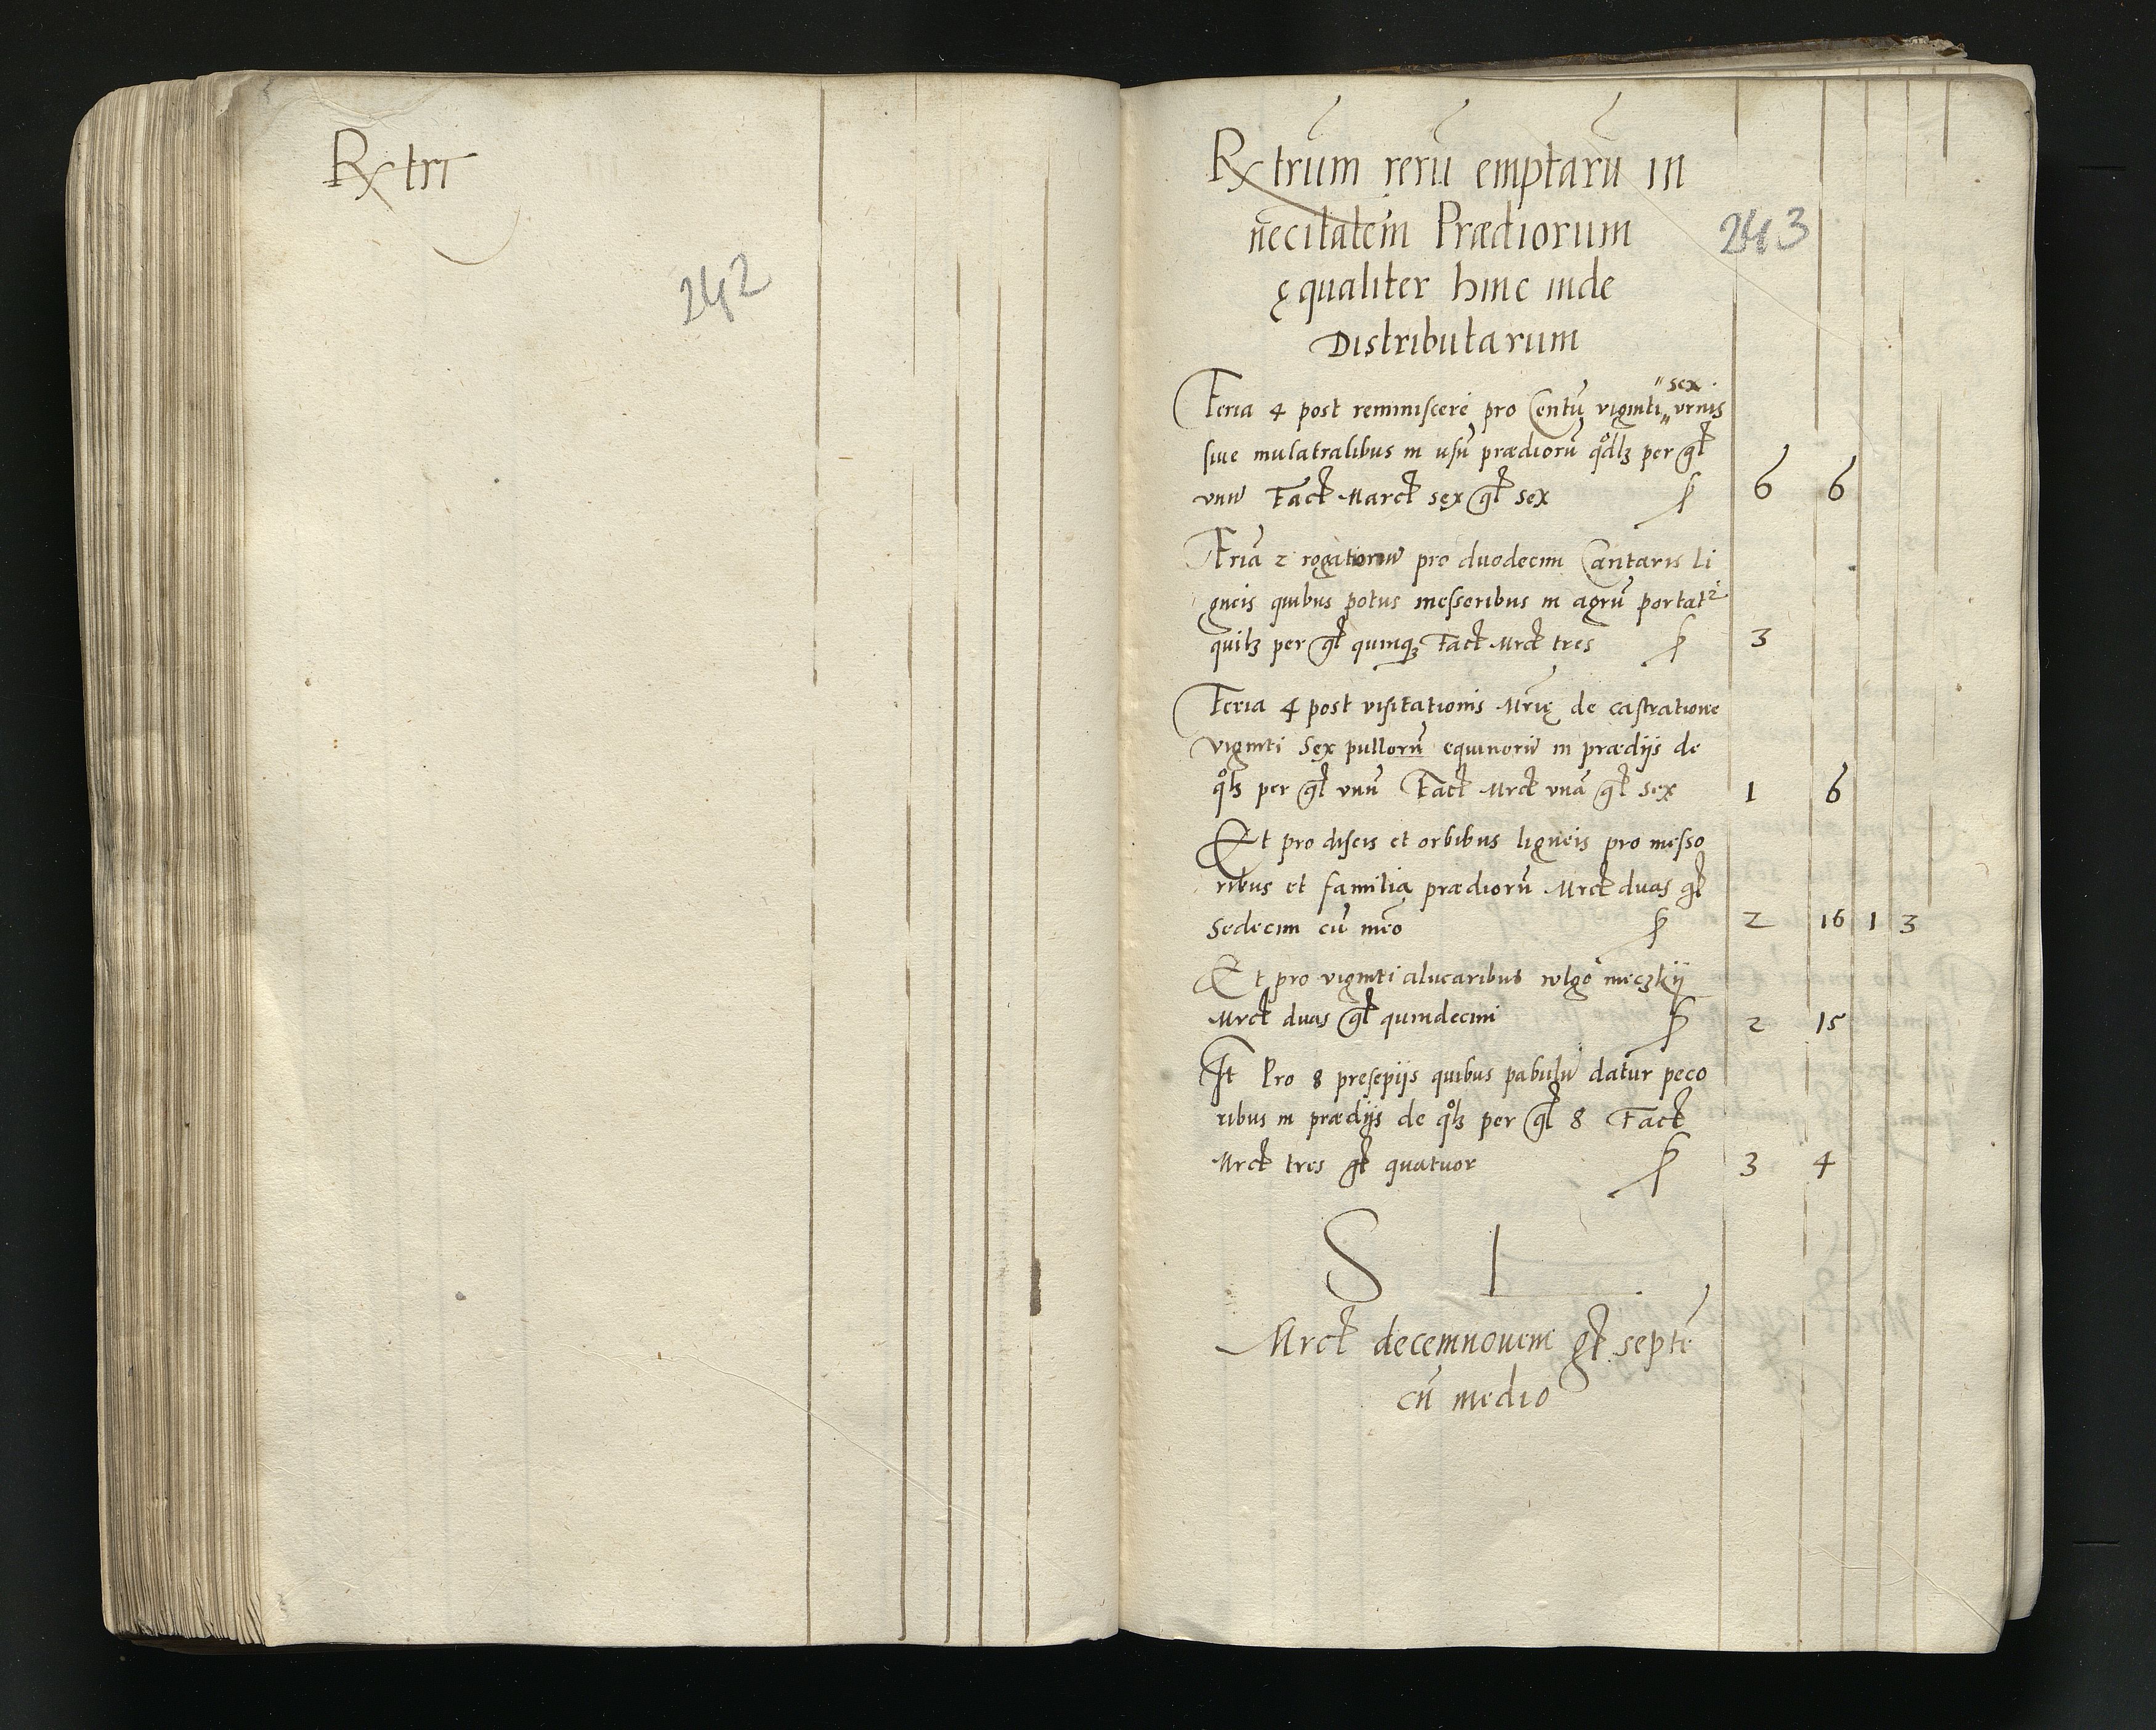 Rx trī
242
Rx trum rerū emptarū in
nēcitatem Prædiorum
243
ęqualiter hinc inde
Distributarum
sex
Feria 4 post reminiscere pro Centū viginti vrnis
siue mulctralibus in usū prædiorū qdlꝫ per gl
vnū Fact Marct sex gl sex 6 6
Fria 2 rogationū pro duodecim Cantaris li
gneis quibus potus messoribus in agrū portat
quilꝫ per gl quinqꝫ Fact Mrct tres 3
Feria 4 post visitationis Mrię de castratione
viginti sex pullorū equinorū in prædijs de
qlꝫ per gl vnū Fact Mrct vnā gl sex 1 6
Et pro discis et orbibus ligneis pro messo
ribus et familia prædiorū Mrct duas gl
sedecim cū meō 2 16 1 3
Et pro viginti alucaribus wlgo nieczkij
Mrct duas gl quindecim 2 15
It Pro 8 presepijs quibus pabulū datur peco
ribus in prædijs de qlꝫ per gl 8 Fact
Mrct tres gl quatuor 3 4
S l
Mrct decemnouem gl septē
cū medio